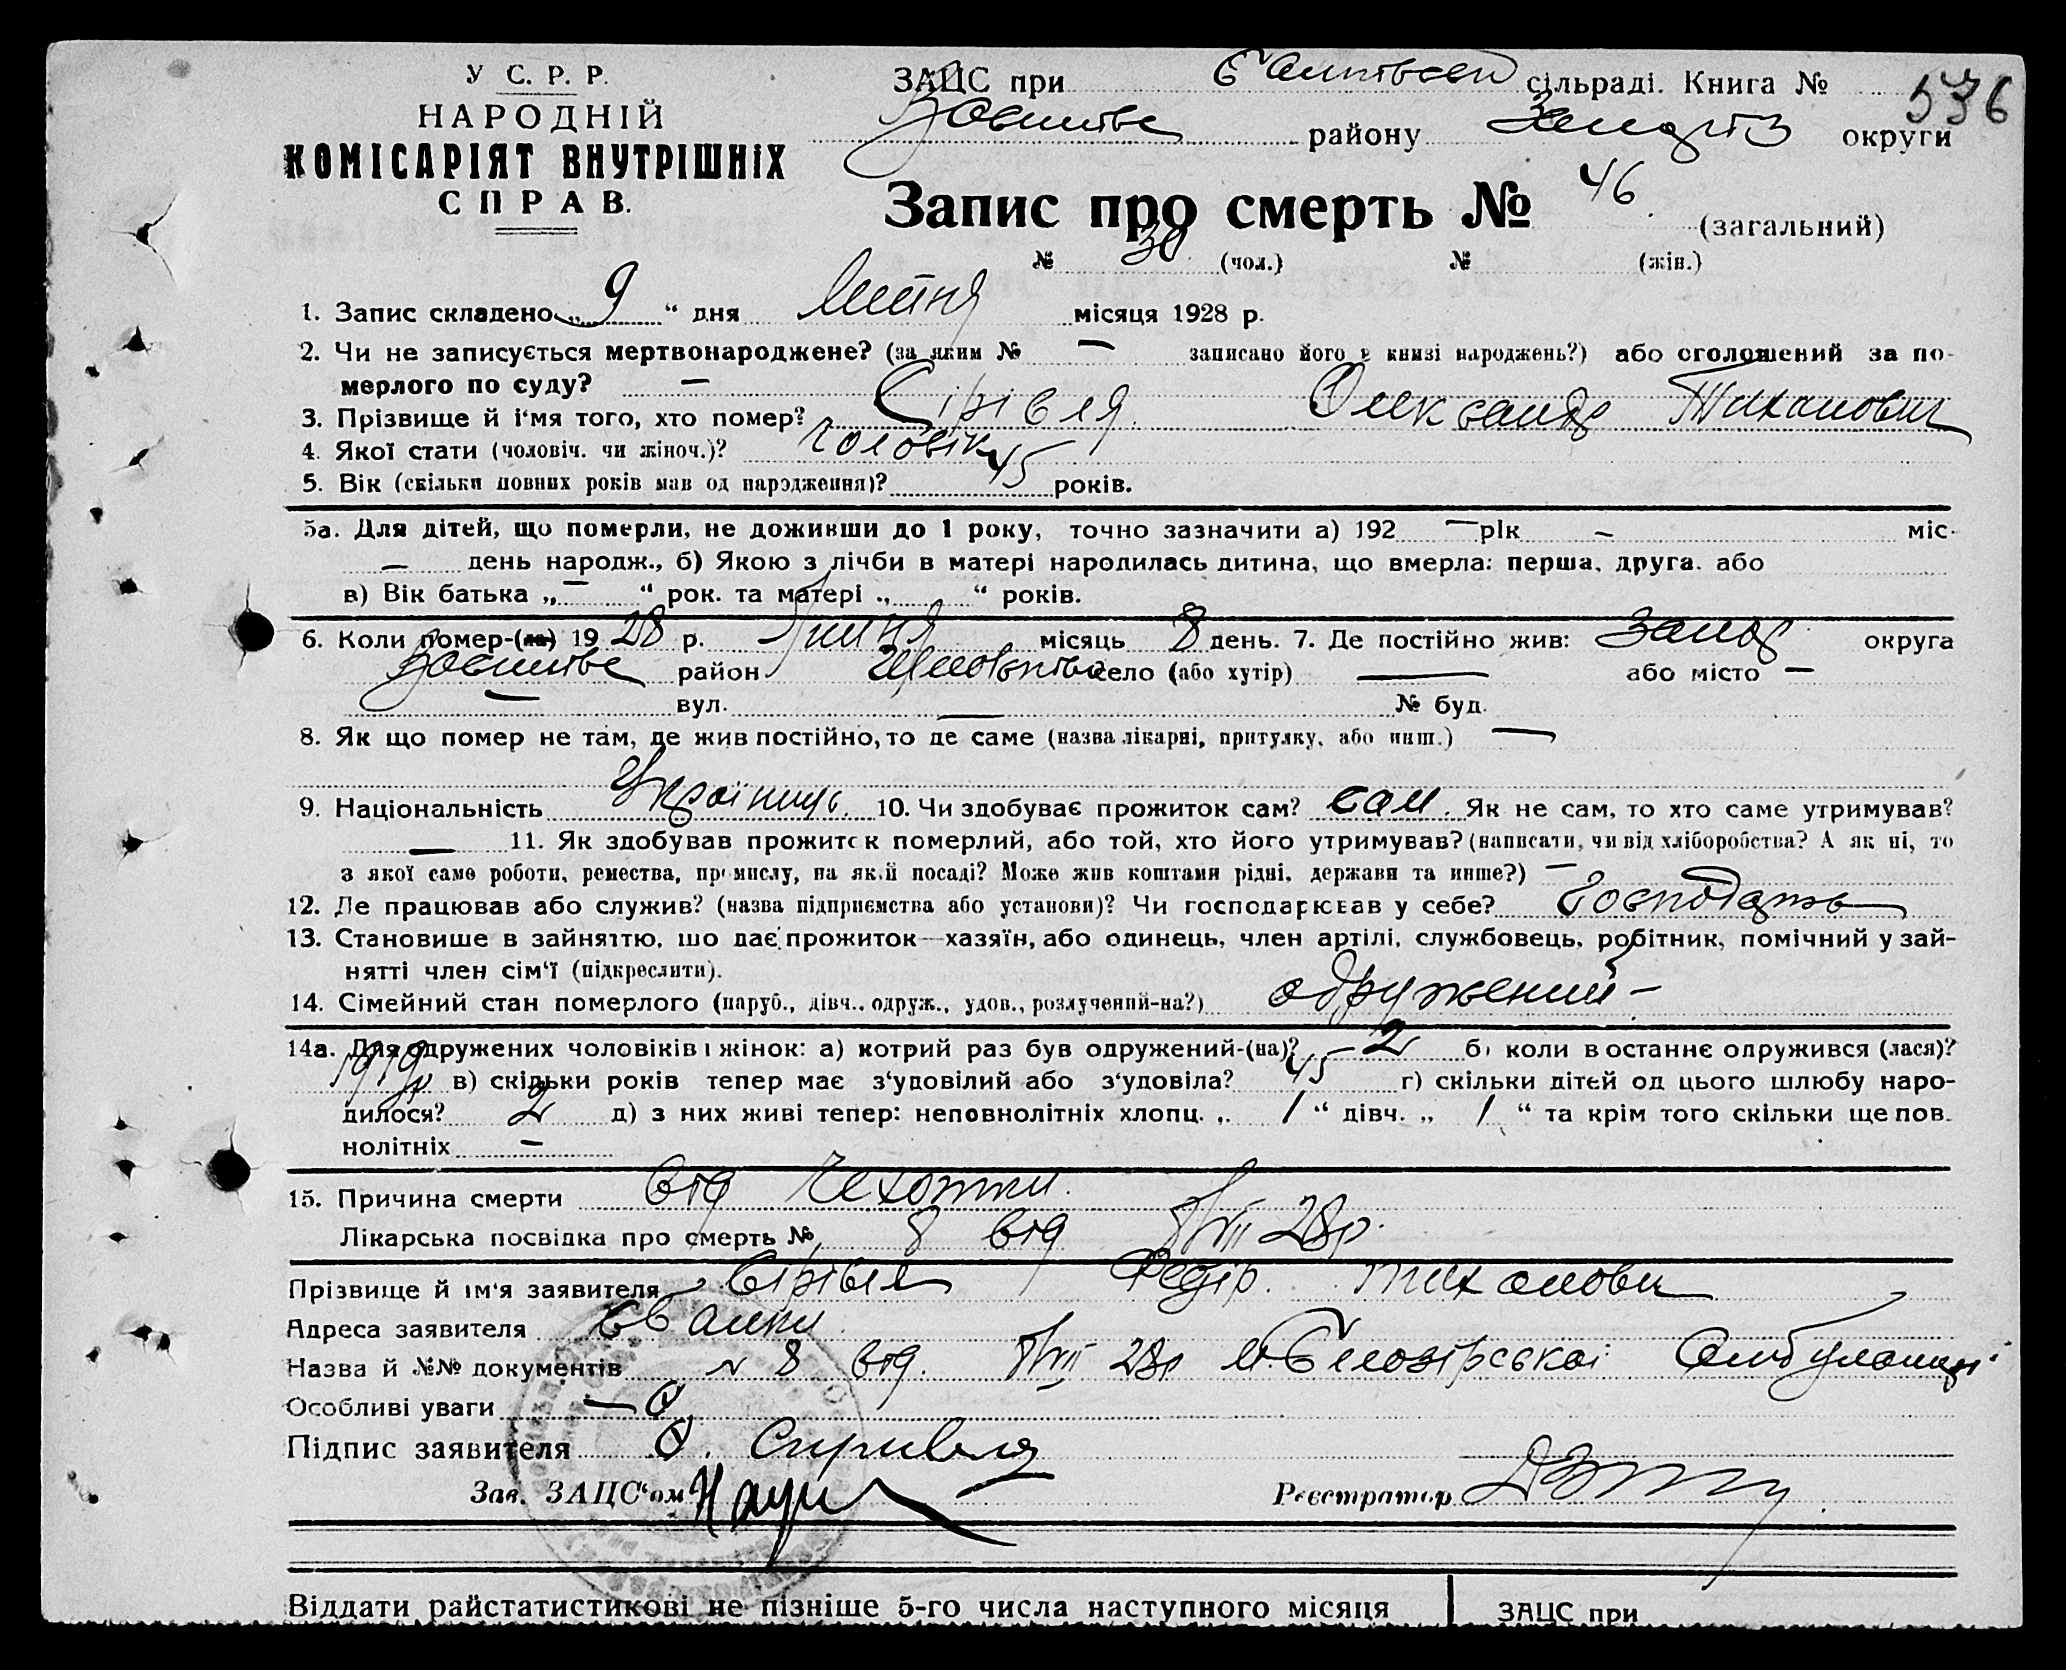 У С. Р. Р.
НАРОДНІЙ
КОМІСАРІЯТ ВНУТРІШНІХ
СПРАВ.
ЗАЦС при сільраді. Книга № 536
району округи
Запис про смерть № 46 (загальний)
№ 30 (чол.) № (жін.)
1. Запис складено „ 9 “ дня Липня місяця 1928 р.
2. Чи не записується мертвонароджене? (за яким № — записано його в книзі народжень?) або оголошений за по-
мерлого по суду? —
3. Прізвище й і'мя того, хто помер? Сірівля Олександр Тиханович
4. Якої стати (чоловіч. чи жіноч.)? чоловік
5. Вік (скільки повних років мав од народження)? 45 років.
5а. Для дітей, що померли, не доживши до 1 року, точно зазначити а) 192 — рік — міс.
— день народж., б) Якою з лічби в матері народилась дитина, що вмерла: перша, друга. або
в) Вік батька „ — “ рок. та матері „ “ років.
6. Коли помер-(ла) 19 28 р. Липня місяць 8 день. 7. Де постійно жив: Запор округа
район село (або хутір) — або місто —
— вул. — № буд.
8. Як що помер не там, де жив постійно, то де саме (назва лікарні, притулку, або инш.) —
9. Національність Українець. 10. Чи здобував прожиток сам? сам. Як не сам, то хто саме утримував?
— 11. Як здобував прожиток померлий, або той, хто його утримував? (написати, чи від хліборобства? А як ні, то
з якої саме роботи, ремества, промислу, на якій посаді? Може жив коштами рідні, держави та инше?) —
12. Де працював або служив? (назва підприємства або установи)? Чи господарював у себе?
13. Становище в зайняттю, що дає прожиток—хазяїн, або одинець, член артілі, службовець, робітник, помічний у зай-
нятті член сім'ї (підкреслити).
14. Сімейний стан померлого (паруб., дівч., одруж., удов., розлучений-на?) одружений —
14а. Для одружених чоловіків і жінок: а) котрий раз був одружений-(на)? — 2 б) коли востаннє одружився (лася)?
1919р в) скільки років тепер має з'удовілий або з'удовіла? 45 г) скільки дітей од цього шлюбу наро-
дилося? 2 д) з них живі тепер: неповнолітніх хлопц. „ 1 “ дівч. „ 1 “ та крім того скільки ще пов.
нолітніх —
15. Причина смерти від Чехотки.
Лікарська посвідка про смерть № 8 від 8/VII 28р.
Прізвище й ім'я заявителя Сірівля Федір. Тиханови
Адреса заявителя
Назва й №№ документів № 8 від. 8/VII 28р Амбулаторії
Особливі уваги —
Підпис заявителя Сиривля
Зав. ЗАЦС'ом Реєстратор
Віддати райстатистикові не пізніше 5-го числа наступного місяця
ЗАЦС при